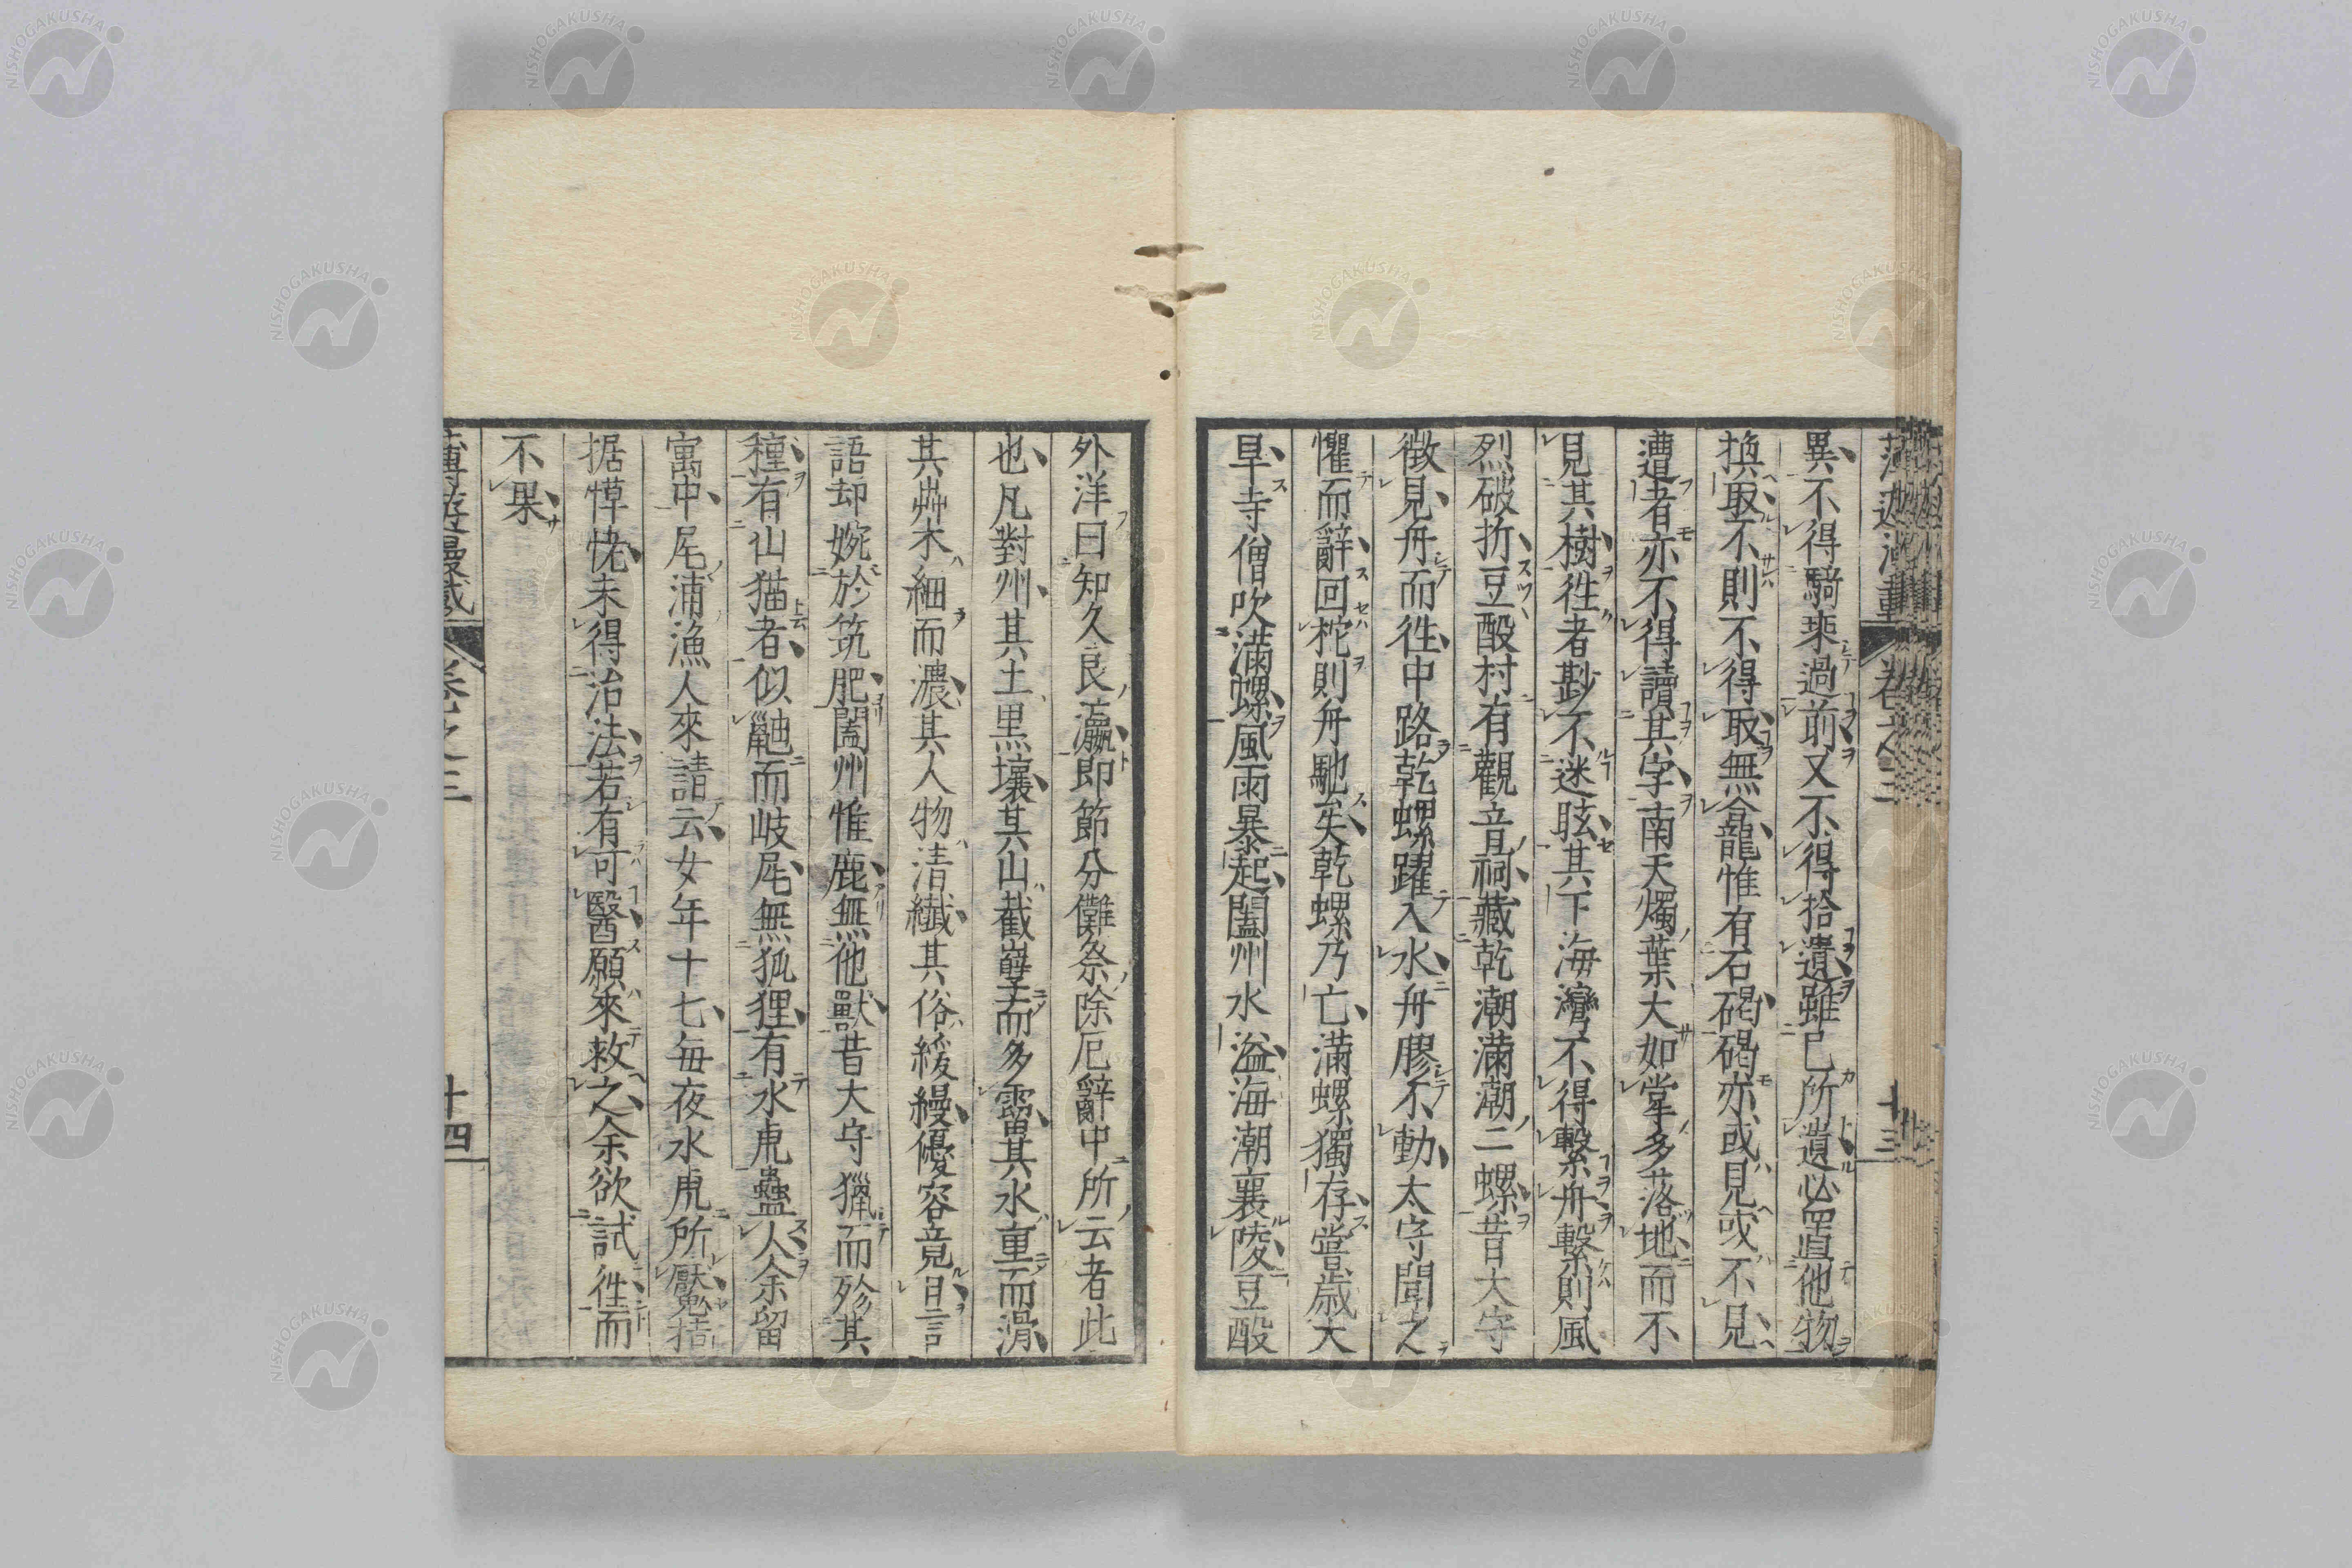 異不得騎乘過前又不得拾遺雖己所遺必置他物
換取不則不得取無龕惟有石碣碣亦或見或不見
遭者亦不得讀其字南天燭葉大如掌多落地而不
見其樹徃者尠不迷眩其下海灣不得繫舟繫則風
烈破折豆酘村有觀音祠藏乾潮滿潮二螺昔大守
徴見舟而徃中路乾螺躍入水舟膠不動太守聞之
懼而辭回柁則舟馳矣乾螺乃亡滿螺獨存嘗歳大
旱寺僧吹滿螺風雨暴起闔州水溢海潮襄陵豆酘
外洋曰知久良瀛即節分儺祭除厄辭中所云者此
也凡對州其土黒壤其山截嶭而多霤其水重而滑
其艸木細而濃其人物清纎其俗緩縵優容竟日言
語却婉於筑肥闔州惟鹿無他獸昔大守獵而殄其
種有山猫者似鼬而岐尾無狐狸有水虎蠱人余留
寓中尾浦漁人來請云女年十七毎夜水虎所魘拮
据慞恍未得治法若有可醫願來救之余欲試徃而
不果
卷之三
十四
NISHOGAKUSHA